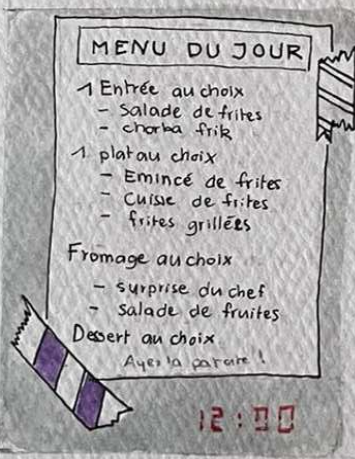 MENU DU JOUR
1 Entrée au choix
- Salade de frites
- chorba frik
1 plat au choix
- Emincé de frites
- Cuisse de frites
- frites grillées
Fromage au choix
- surprise du chef
- salade de fruites
Dessert au choix
la
12:00